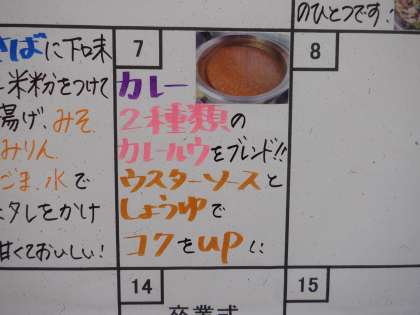 のひとつです!
さばに下味
米粉をつけて
揚げ みそ.
みりん.
ごま.水で
タレをかけ
甘くておいしい!
7
カレー
2種類の
カレールウをブレンド!!
ウスターソースと
しょうゆで
コクをup
8
14
卒業式
15